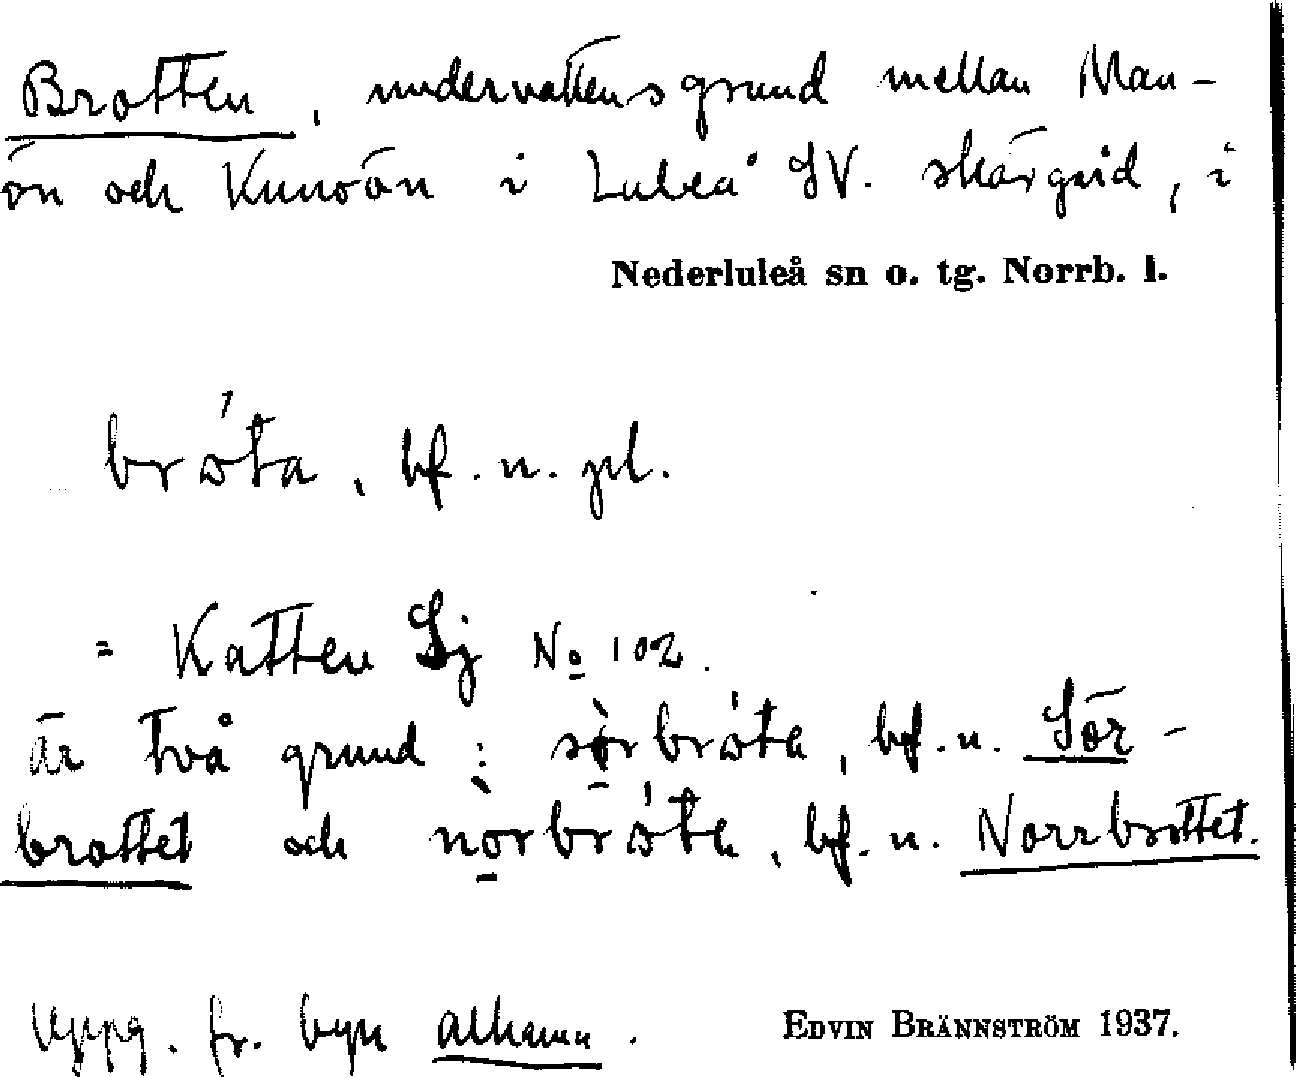 Brotten, undervattensgrund mellan Man-
ön och Kunoön i Luleå SV. skärgård, i
Nederluleå sn o. tg. Norrb. l.
bróta, bf. n. pl.
= Katten Sj No 102.
är två grund: sø̀rbróta, bf. n. Sör-
brottet och nòrbróta, bf. n. Norrbrottet.
Uppg. fr. byn Alhamn.
EDVIN BRÄNNSTRÖM 1937.